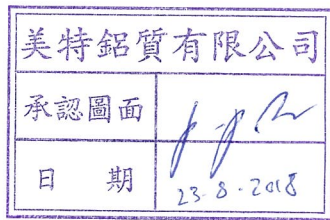 美特鋁質有限公司
承認圖面
日　期 23-8-2018